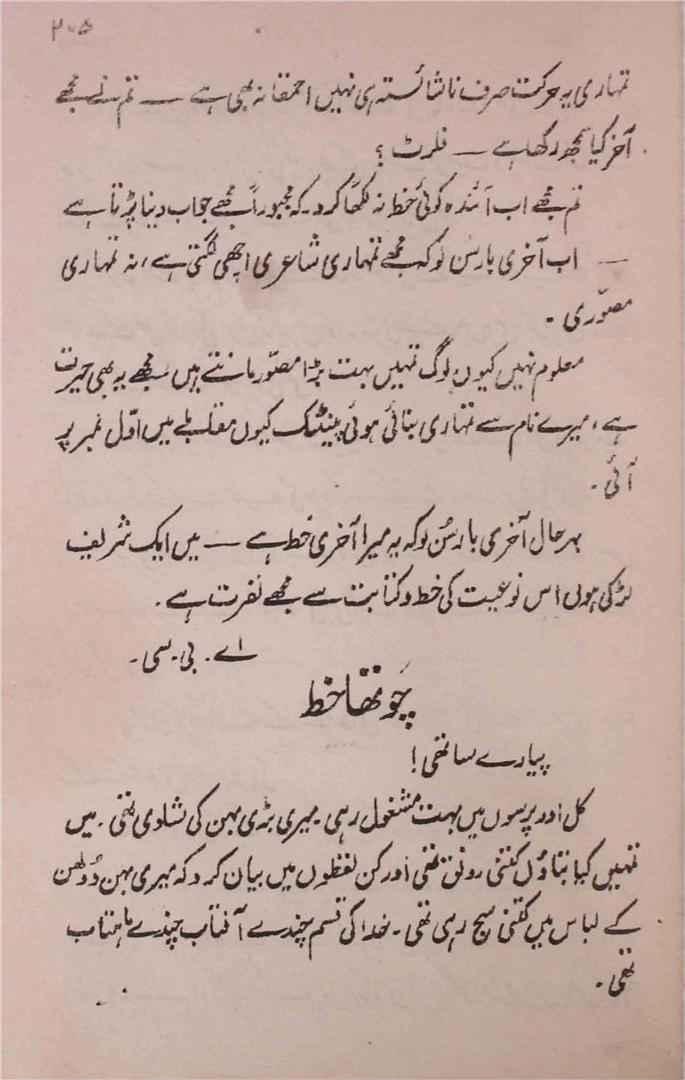 ۲۰۵
تمہاری یہ حرکت صرف ناشائستہ ہی نہیں احمقانہ بھی ہے — تم نے مجھے
آخر کیا سمجھ رکھا ہے — فلرٹ ؟
تم مجھے اب آئندہ کوئی خط نہ لکھا کرو۔ کہ مجبوراً مجھے جواب دینا پڑتا ہے
— اب آخری بار سن لو کہ مجھے تمہاری شاعری اچھی لگتی ہے، نہ تمہاری
مصوّری ۔
معلوم نہیں کیوں لوگ تمہیں بہت بڑا مصوّر مانتے ہیں مجھے یہ بھی حیرت
ہے، میرے نام سے تمہاری بنائی ہوئی پینٹنگ کیوں مقابلے میں اوّل نمبر پر
آئی ۔
بہر حال آخری بار سُن لو کہ یہ میرا آخری خط ہے — میں ایک شریف
لڑکی ہوں اس نوعیت کی خط و کتابت سے مجھے نفرت ہے ۔
اے ۔ بی ۔ سی ۔
چَوتھا خط
پیارے ساتھی !
کل اور پرسوں میں بہت مشغول رہی ۔ میری بڑی بہن کی شادی تھی ۔ میں
تمہیں کیا بتاؤں کتنی رونق تھی اور کن لفظوں میں بیان کروں کہ میری بہن دُولھن
کے لباس میں کتنی سج رہی تھی ۔ خدا کی قسم چندے آفتاب چندے ماہتاب
تھی ۔